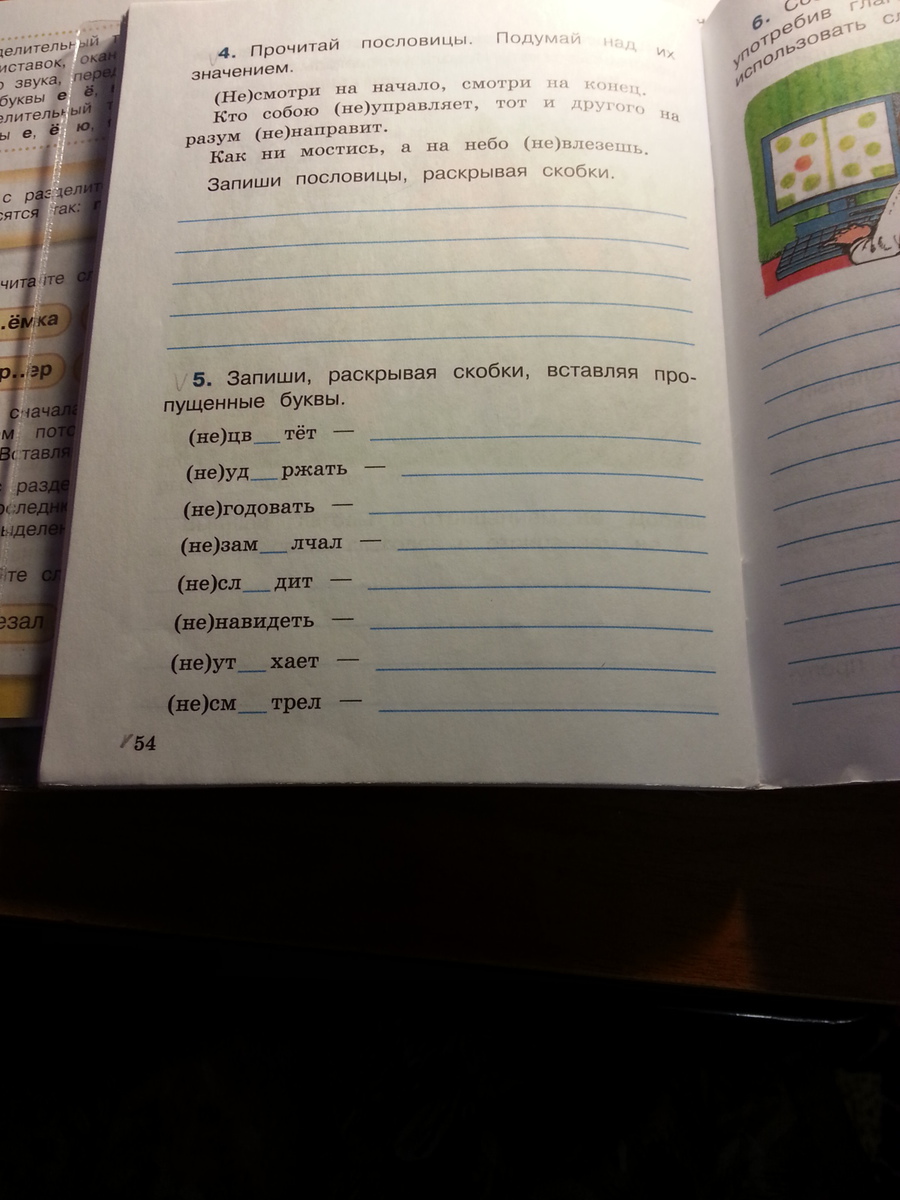 делительный
ы е, ё, ю,
с раздели
сятся так:
.ёмка
р..ер
сначала
м пото
Вставля
с разде
последн
ыделен
езал
4. Прочитай пословицы. Подумай над их
значением.
(Не)смотри на начало, смотри на конец.
Кто собою (не)управляет, тот и другого на
разум (не)направит.
Как ни мостись, а на небо (не)влезешь.
Запиши пословицы, раскрывая скобки.
5. Запиши, раскрывая скобки, вставляя про-
пущенные буквы.
(не)цв__тёт —
(не)уд__ржать —
(не)годовать —
(не)зам__лчал —
(не)сл__дит —
(не)навидеть —
(не)ут__хает —
(не)см__трел —
54
6.
употребив
использовать